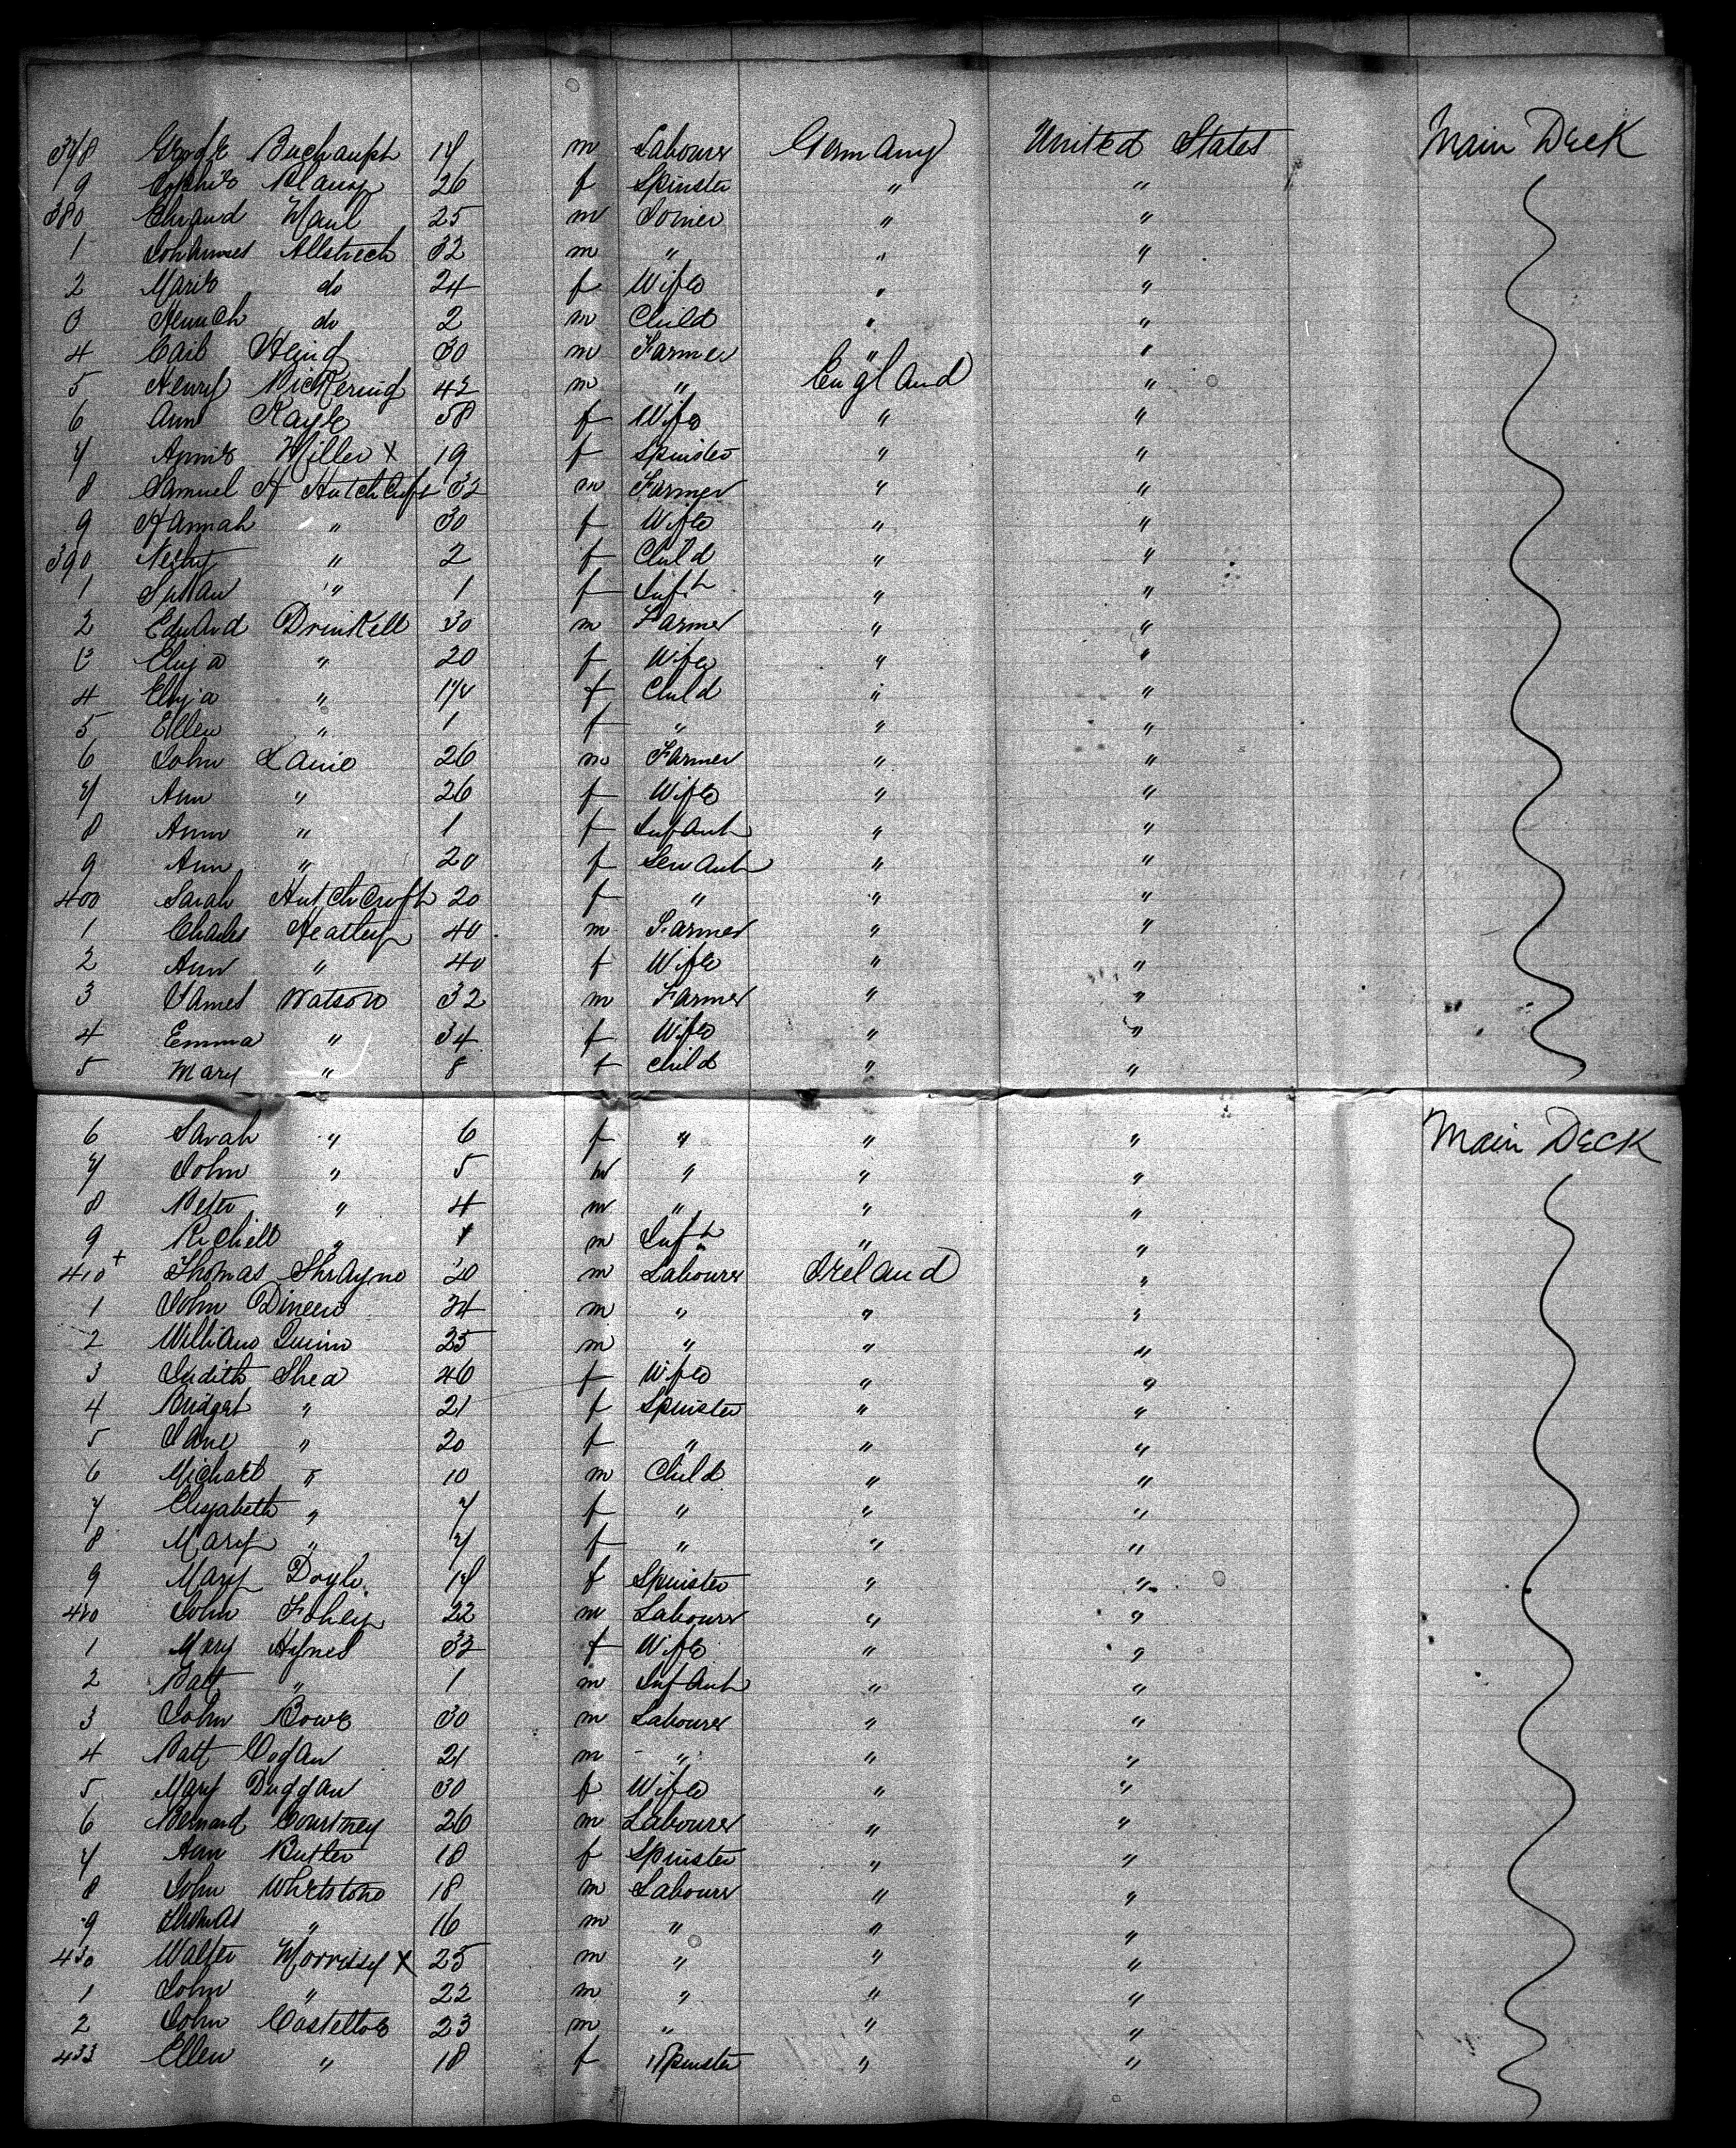 378 George 17 m Labourer Germany United States Main Deck
9 Sophie 26 f Spinster " "
380 Maul 25 m Joiner " "
1 Johannes 32 m " " "
2 Marie do 24 f Wife " "
3 Heinrich do 2 m Child " "
4 30 m Farmer " "
5 Henry Pickering 42 m " England "
6 Ann Kayle 58 f Wife " "
7 Annie Miller x 19 f Spinster " "
8 Samuel H Hutchcroft 32 m Farmer " "
9 Hannah " 30 f Wife " "
390 " 2 f Child " "
1 Susan " 1 f Inft " "
2 Edward Drinkell 30 m Farmer " "
3 Eliza " 20 f Wife " "
4 Eliza " f Child " "
5 Ellen " 1 f " " "
6 John Laine 26 m Farmer " "
7 Ann " 26 f Wife " "
8 Ann " 1 f Infant " "
9 Ann " 20 f Servant " "
400 Sarah Hutchcroft 20 f " " "
1 Charles Heatley 40 m Farmer " "
2 Ann " 40 f Wife " "
3 James Watson 32 m Farmer " "
4 Emma " 34 f Wife " "
5 Mary " 8 f Child " "
6 Sarah " 6 f " " " Main Deck
7 John " 5 m " " "
8 Peter " 4 m " " "
9 " 1 m Inft " "
410 + Thomas 20 m Labourer Ireland "
1 John Dineen 24 m " " "
2 William Quinn 25 m " " "
3 Judith Shea 46 f Wife " "
4 Bridget " 21 f Spinster " "
5 Jane " 20 f " " "
6 Michael " 10 m Child " "
7 Elizabeth " 7 f " " "
8 Mary " 7 f " " "
9 Mary Doyle 17 f Spinster " "
420 John Foley 22 m Labourer " "
1 Mary Hynes 32 f Wife " "
2 Patt " 1 m Infant " "
3 John Bowe 30 m Labourer " "
4 Patt Cogan 21 m " " "
5 Mary Duggan 30 f Wife " "
6 Bernard Courtney 26 m Labourer " "
7 Ann Butler 18 f Spinster " "
8 John Whetstone 18 m Labourer " "
9 Thomas " 16 m " " "
430 Walter Morrissy x 25 m " " "
1 John " 22 m " " "
2 John Costelloe 23 m " " "
433 Ellen " 18 f Spinster " "